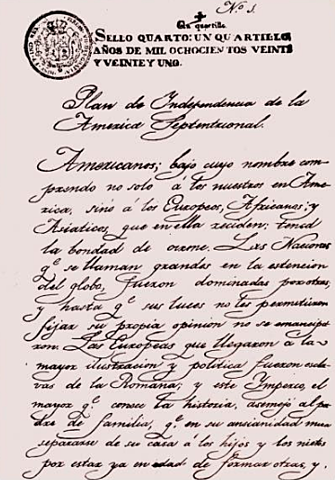 Nº 1.
Un quartillo
SELLO QUARTO: UN QUARTILLO
AÑOS DE MIL OCHOCIENTOS VEINTE
Y VEINTE Y UNO.
Plan de Independencia de la
America Septentrional.
Americanos; bajo cuyo nombre com-
prendo no solo á los nuestros en Ame-
rica, sinó á los Europeos, Africanos; y
Asiaticos, que en ella reciden; tened
la bondad de oirme. Las Naciones
q.e se llaman grandes en la estencion
del globo, fueron dominadas por otras,
y hasta q.e sus luces no les permitieron
fijar su propia opinion no se emancipa-
ron. Las Europeas que llegaron á la
mayor ilustracion y politica fueron escla-
vas de la Romana; y este Imperio, el
mayor q.e conoce la historia, asemejó al pa-
dre de familia, q.e en su ancianidad mira
separarse de su casa á los hijos y los nietos
por estar ya en edad de formar otras, y